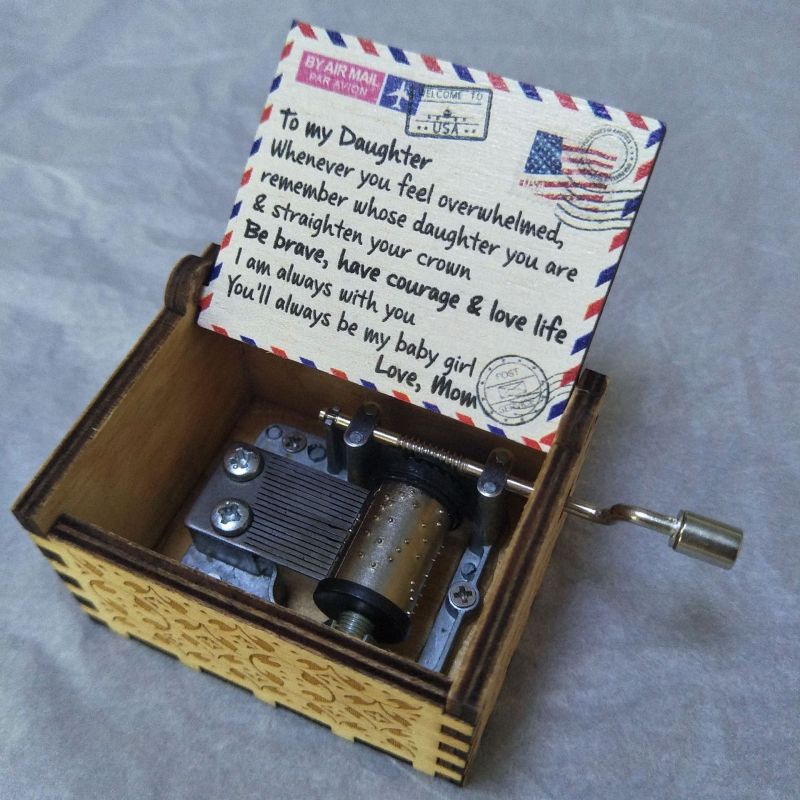 BY AIR MAIL
PAR AVION
WELCOME TO
USA
To my Daughter
Whenever you feel overwhelmed,
remember whose daughter you are
& straighten your crown
Be brave, have courage & love life
I am always with you
You'll always be my baby girl
Love, Mom
POST
SERVICE